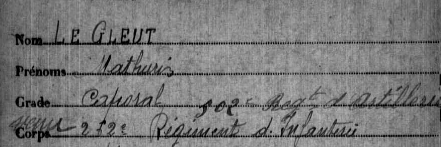 Nom LE GLEUT
Prénoms Mathurin
Grade Caporal 502e Regt d'Artillerie
Corps 252e Régiment d'Infanterie